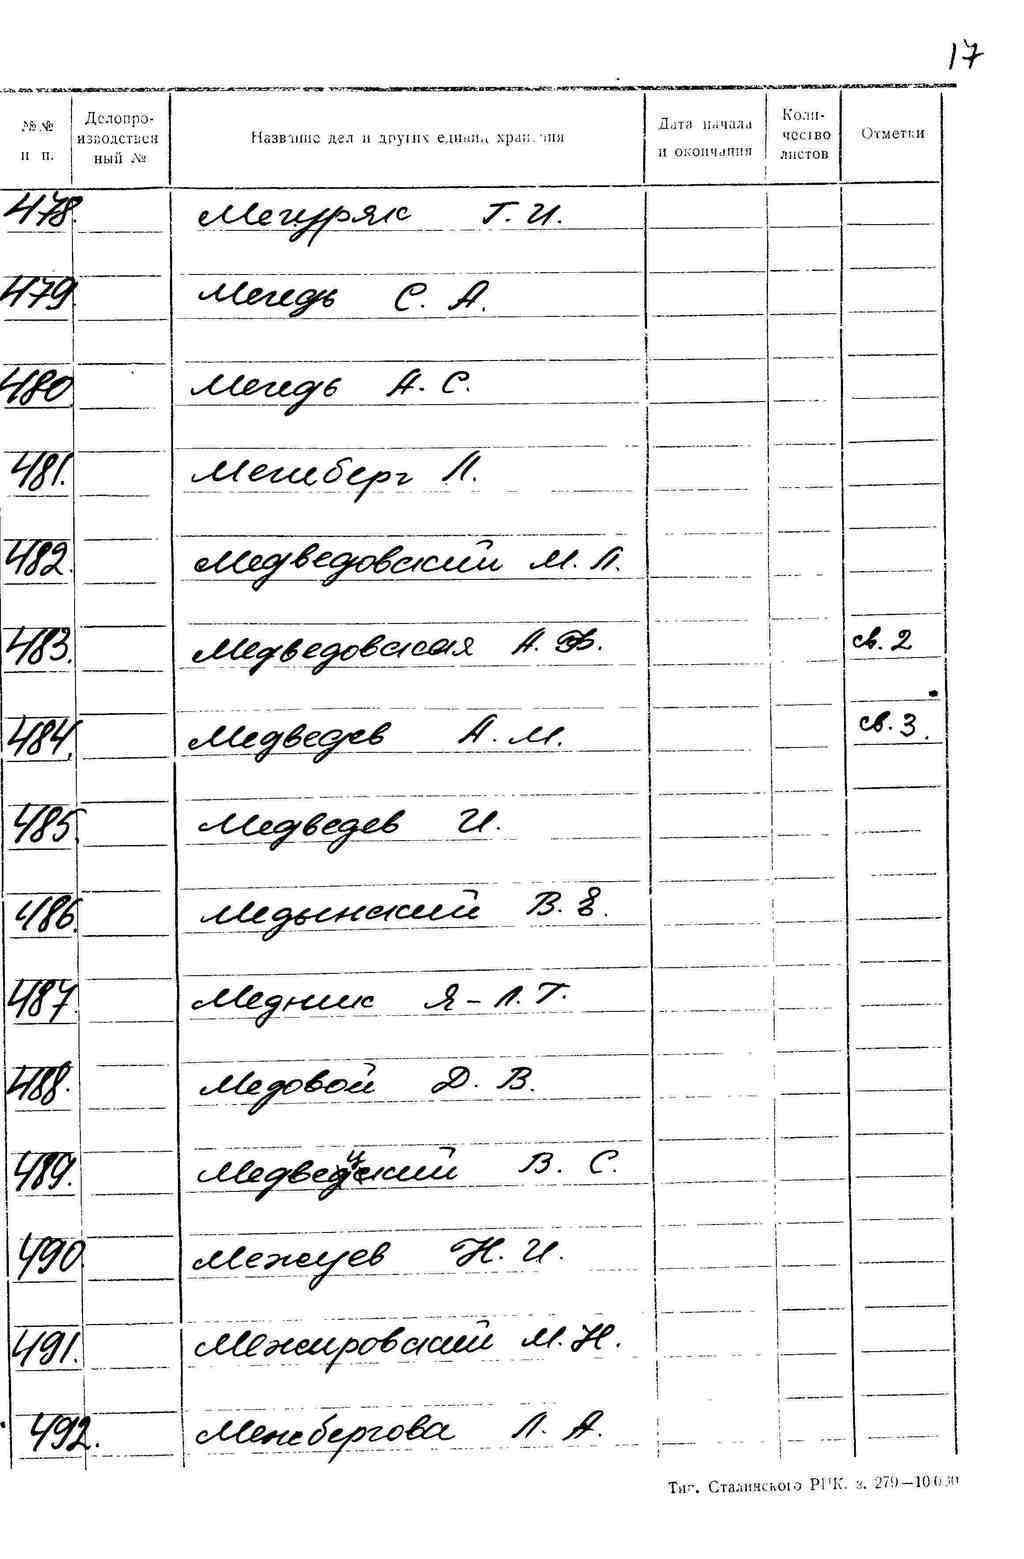 17
№№ п п. | Делопроизводствен ный № | Название дел и других единиц хранения | Дата начала и окончания | Количество листов | Отметки
478. Мегуряк Г. И.
479. Мегедь С. А.
480 Мегедь А. С.
481. Мегеберг Л.
482. Медведовский М. Л.
483. Медведовская А. Ф. св. 2
484. Медведев А. М. св. 3.
485. Медведев И.
486. Медынский В. Е.
487. Медник Я-Л. Г.
488. Медовой Д. В.
489. Медвецкий В. С.
490 Межуев Н. И.
491. Межировский М. Н.
492. Межбергова Л. А.
Тип. Сталинского РПК. з. 279—10000